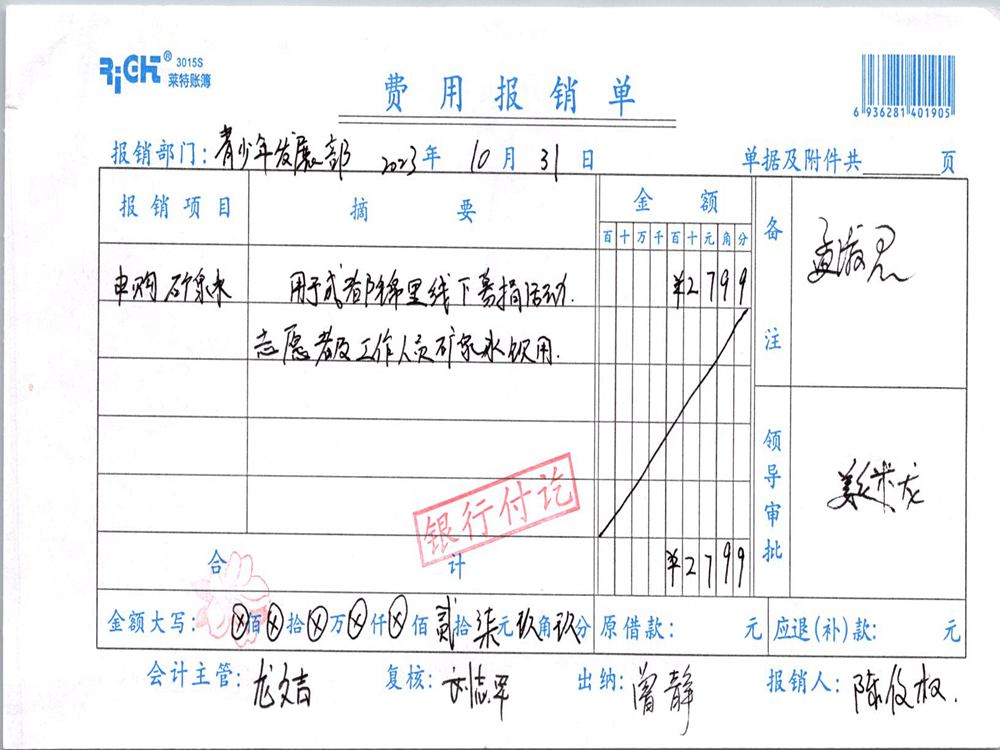 RiGHT® 3015S
莱特账簿
费用报销单
6 936281 401905
报销部门：青少年发展部 2023年 10月 31日 单据及附件共 页
报销项目 摘要 金额 备注
百十万千百十元角分
申购矿泉水 用于成都锦里线下募捐活动. ¥2799
志愿者及工作人员矿泉水饮用.
孟淑君
银行付讫
领导审批
合计 ¥2799
金额大写：ⓧ佰ⓧ拾ⓧ万ⓧ仟ⓧ佰贰拾柒元玖角玖分 原借款： 元 应退(补)款： 元
会计主管：龙文吉 复核：刘志军 出纳：曾静 报销人：陈俊权.